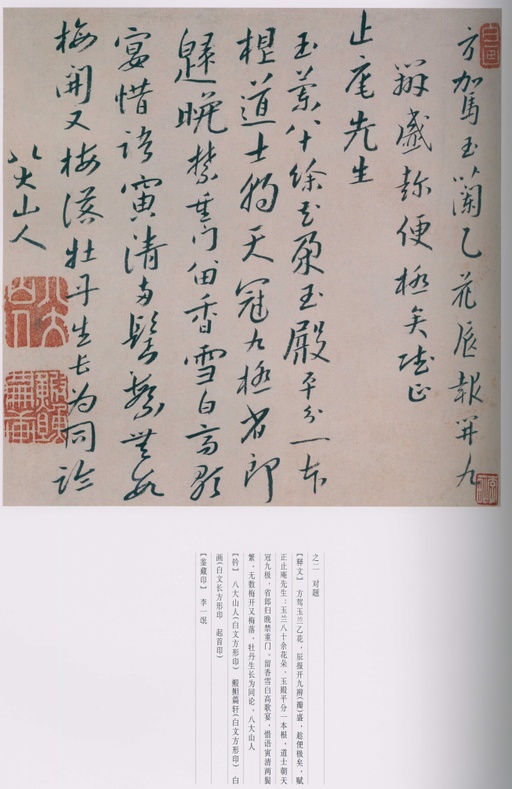 方駕玉蘭乙花辰報開九
辦盛趂便極矣賦正
止庵先生
玉蘭八十餘花朶玉殿平分一本
根道士朝天冠九極省郎
歸晚禁重門留香雪白高歌
宴惜語寅清兩鬢繁無數
梅開又梅落牡丹生長为同論
八大山人
之二 对题
【释文】 方驾玉兰乙花，辰报开九辨(瓣)盛，趁便极矣，赋
正止庵先生：玉兰八十余花朵，玉殿平分一本根，道士朝天
冠九极，省郎归晚禁重门，留香雪白高歌宴，惜语寅清两鬓
繁，无数梅开又梅落，牡丹生长为同论。八大山人
【钤】 八大山人(白文方形印) 篇轩(白文方形印) 白
画(白文长方形印 起首印)
【鉴藏印】 李一氓